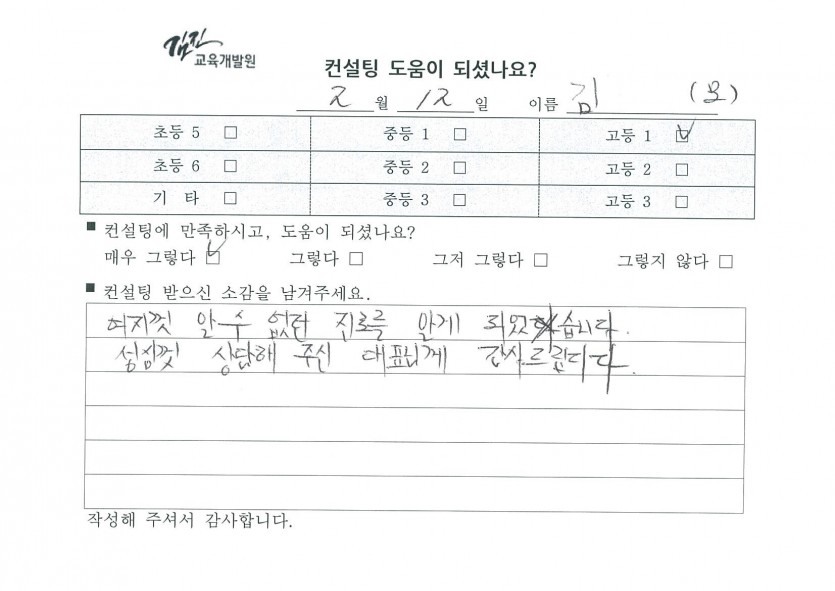 김진
교육개발원
컨설팅 도움이 되셨나요?
2 월 12 일 이름 김 (모)
초등 5 □ 중등 1 □ 고등 1 ☑
초등 6 □ 중등 2 □ 고등 2 □
기 타 □ 중등 3 □ 고등 3 □
■ 컨설팅에 만족하시고, 도움이 되셨나요?
매우 그렇다 ☑ 그렇다 □ 그저 그렇다 □ 그렇지 않다 □
■ 컨설팅 받으신 소감을 남겨주세요.
여지껏 알 수 없던 진로를 알게 되었습니다.
성심껏 상담해 주신 대표님께 감사드립니다.
작성해 주셔서 감사합니다.